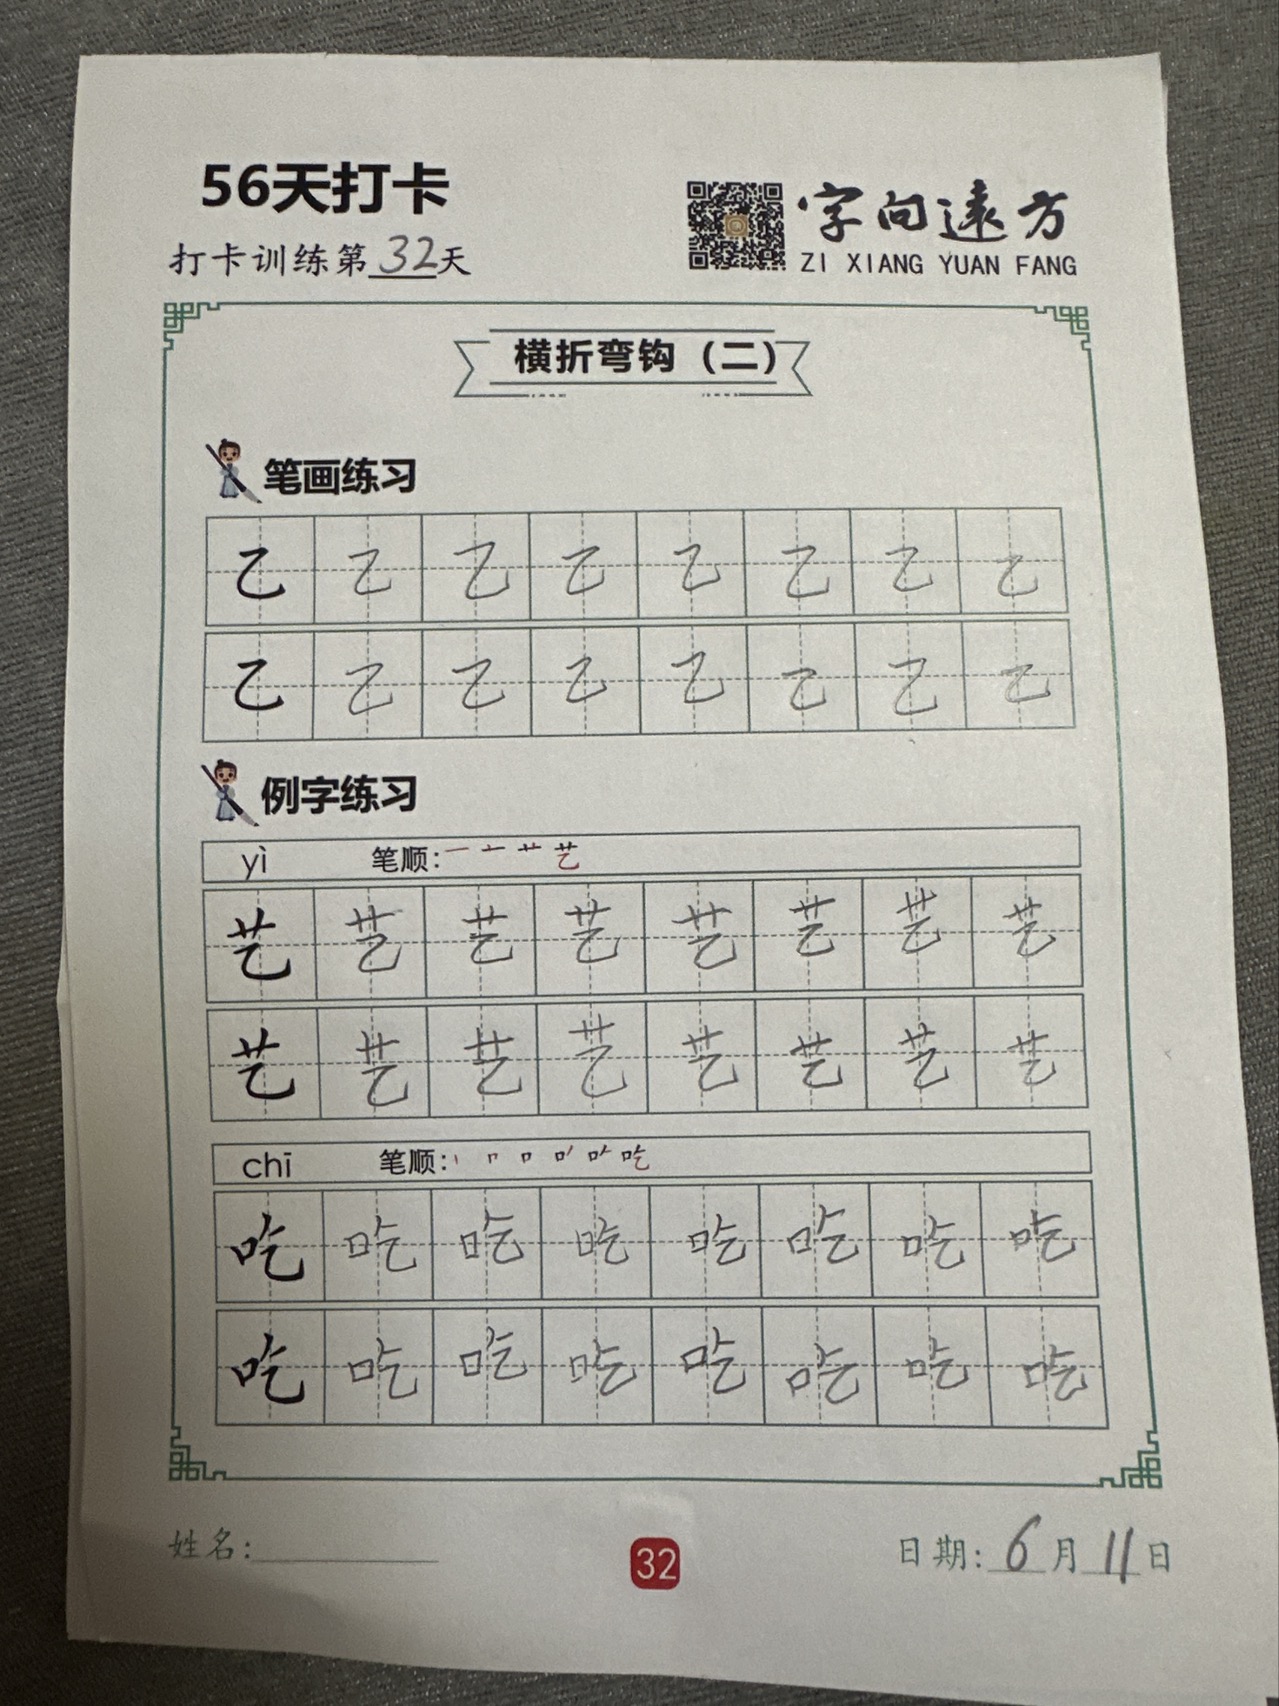 56天打卡
打卡训练第32天
字向遠方
ZI XIANG YUAN FANG
横折弯钩（二）
笔画练习
乙 乙 乙 乙 乙 乙 乙 乙
乙 乙 乙 乙 乙 乙 乙 乙
例字练习
yì 笔顺: 一 十 艹 艺
艺 艺 艺 艺 艺 艺 艺 艺
艺 艺 艺 艺 艺 艺 艺 艺
chī 笔顺: 吃
吃 吃 吃 吃 吃 吃 吃 吃
吃 吃 吃 吃 吃 吃 吃 吃
姓名:
32
日期: 6月11日